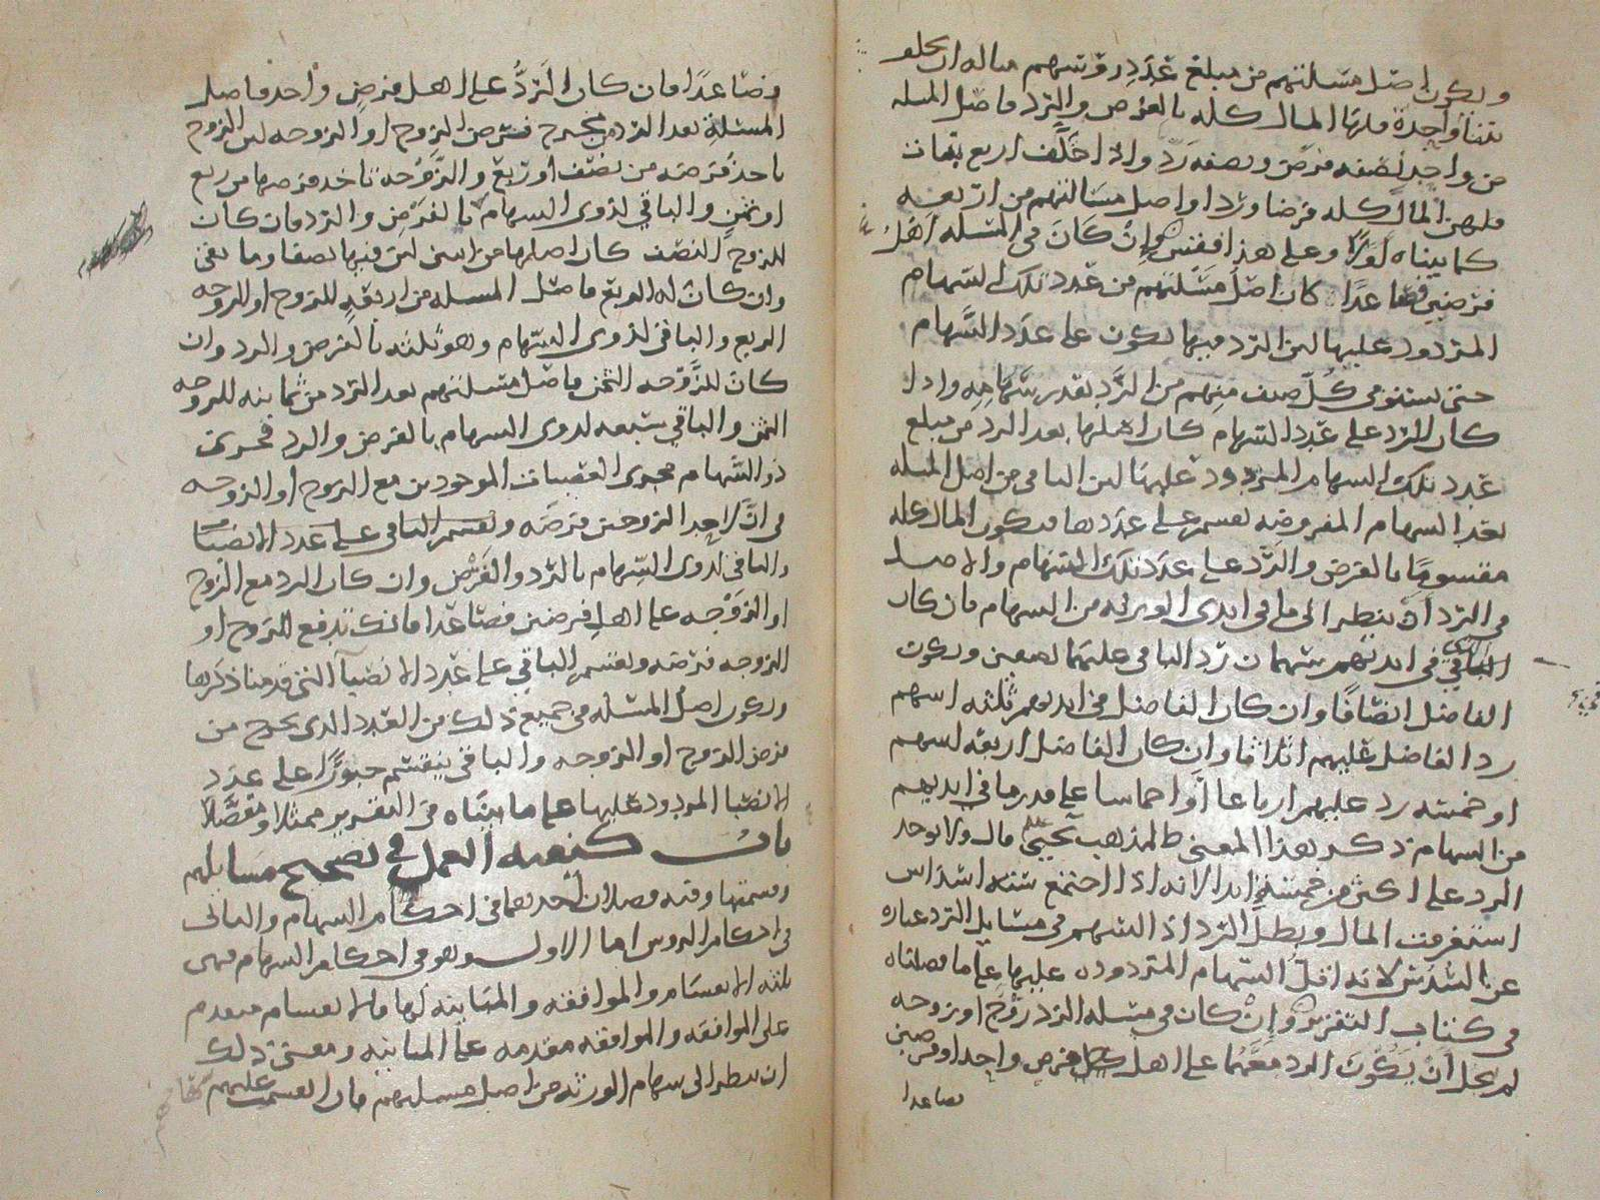 ويكون اصل مسئلتهم من مبلغ عدد رؤسهم مثاله ان يخلف
بنتا واحدة فلها المال كله بالفرض والرد فاصل المسئله
من واحد نصفه فرض ونصفه رد واذا خلف اربع بنات
فلهن المال كله فرضا وردا واصل مسالتهم من اربعه
كما بيناه اولا وعلى هذا فقس وان كان في المسئله اهل
فرضين فصاعدا كان اصل مسئلتهم من عدد تلك السهام
المردود عليها لان الرد فيها يكون على عدد السهام
حتى يستوفي كل صنف منهم من الرد بقدر سهامه واذا
كان الرد على عدد السهام كان اصلها بعد الرد من مبلغ
عدد تلك السهام المردود عليها لان الباقي من اصل المسله
بعد السهام المفروضه يقسم على عددها فيكون المال كله
مقسوما بالفرض والرد على عدد تلك السهام والاصل
في الرد ان ينظر الى ما في ايدي الورثه من السهام فان كان
الباقي في ايديهم سهمان رد الباقي عليهما نصفين ويكون
الفاضل انصافا وان كان الفاضل في ايديهم ثلثه اسهم
رد الفاضل عليهم اثلاثا وان كان الفاضل اربعه اسهم
او خمسه رد عليهم ارباعا او اخماسا على قدر ما في ايديهم
من السهام ذكر هذا المعنى ط لمذهب يحيى قال ولا يوجد
الرد على اكثر من خمسة ابدا لانه اذا اجتمع سته اسداس
استغرقت المال وبطل الرد اذ السهم في مسايل الرد عباره
عن السدس لانه اقل السهام المردوده عليها على ما فصلناه
في كتاب التقرير وان كان في مسله الرد زوج او زوجه
لم يخل ان يكون الرد معهما على اهل فرض واحد او فرضين
فصاعدا
فصاعدا فان كان الرد على اهل فرض واحد فاصل
المسئلة بعد الرد من مخرج فرض الزوج او الزوجه لان الزوج
ياخذ فرضه من نصف او ربع والزوجه تاخذ فرضها من ربع
او ثمن والباقي لذوي السهام بالفرض والرد فان كان
للزوج النصف كان اصلها من اثنين لان فيها نصفا وما بقى
وان كان له الربع فاصل المسله من اربعه للزوج او للزوجه
الربع والباقي لذوي السهام وهو ثلثه بالفرض والرد وان
كان للزوجه الثمن فاصل مسئلتهم بعد الرد من ثمانيه للزوجه
الثمن والباقي سبعه لذوي السهام بالفرض والرد فجرى
ذو السهام مجرى العصبات الموجودين مع الزوج او الزوجه
في ان لاحد الزوجين فرضه ويقسم الباقي على عدد الانصبا
والباقي لذوي السهام بالرد والفرض وان كان الرد مع الزوج
او الزوجه على اهل فرضين فصاعدا فانك تدفع للزوج او
الزوجه فرضه وتقسم الباقي على عدد الانصبا التي قدمنا ذكرها
ويكون اصل المسئله في جميع ذلك من العدد الذي يخرج من
فرض الزوج او الزوجه والباقي ينقسم جبورا على عدد
الانصبا المردود عليها على ما بيناه في التقرير ممثلا ومفصلا
باب كيفيه العمل في تصحيح مسايلهم
وقسمتها وفيه فصلان احدهما في احكام السهام والثاني
في احكام الروس اما الاول وهو في احكام السهام فهي
ثلثه الانقسام والموافقه والمباينه لها فالانقسام مقدم
على الموافقه والموافقه مقدمه على المباينه ومعنى ذلك
ان ينظر الى سهام الورثه من اصل مسئلتهم فان انقسمت عليهم